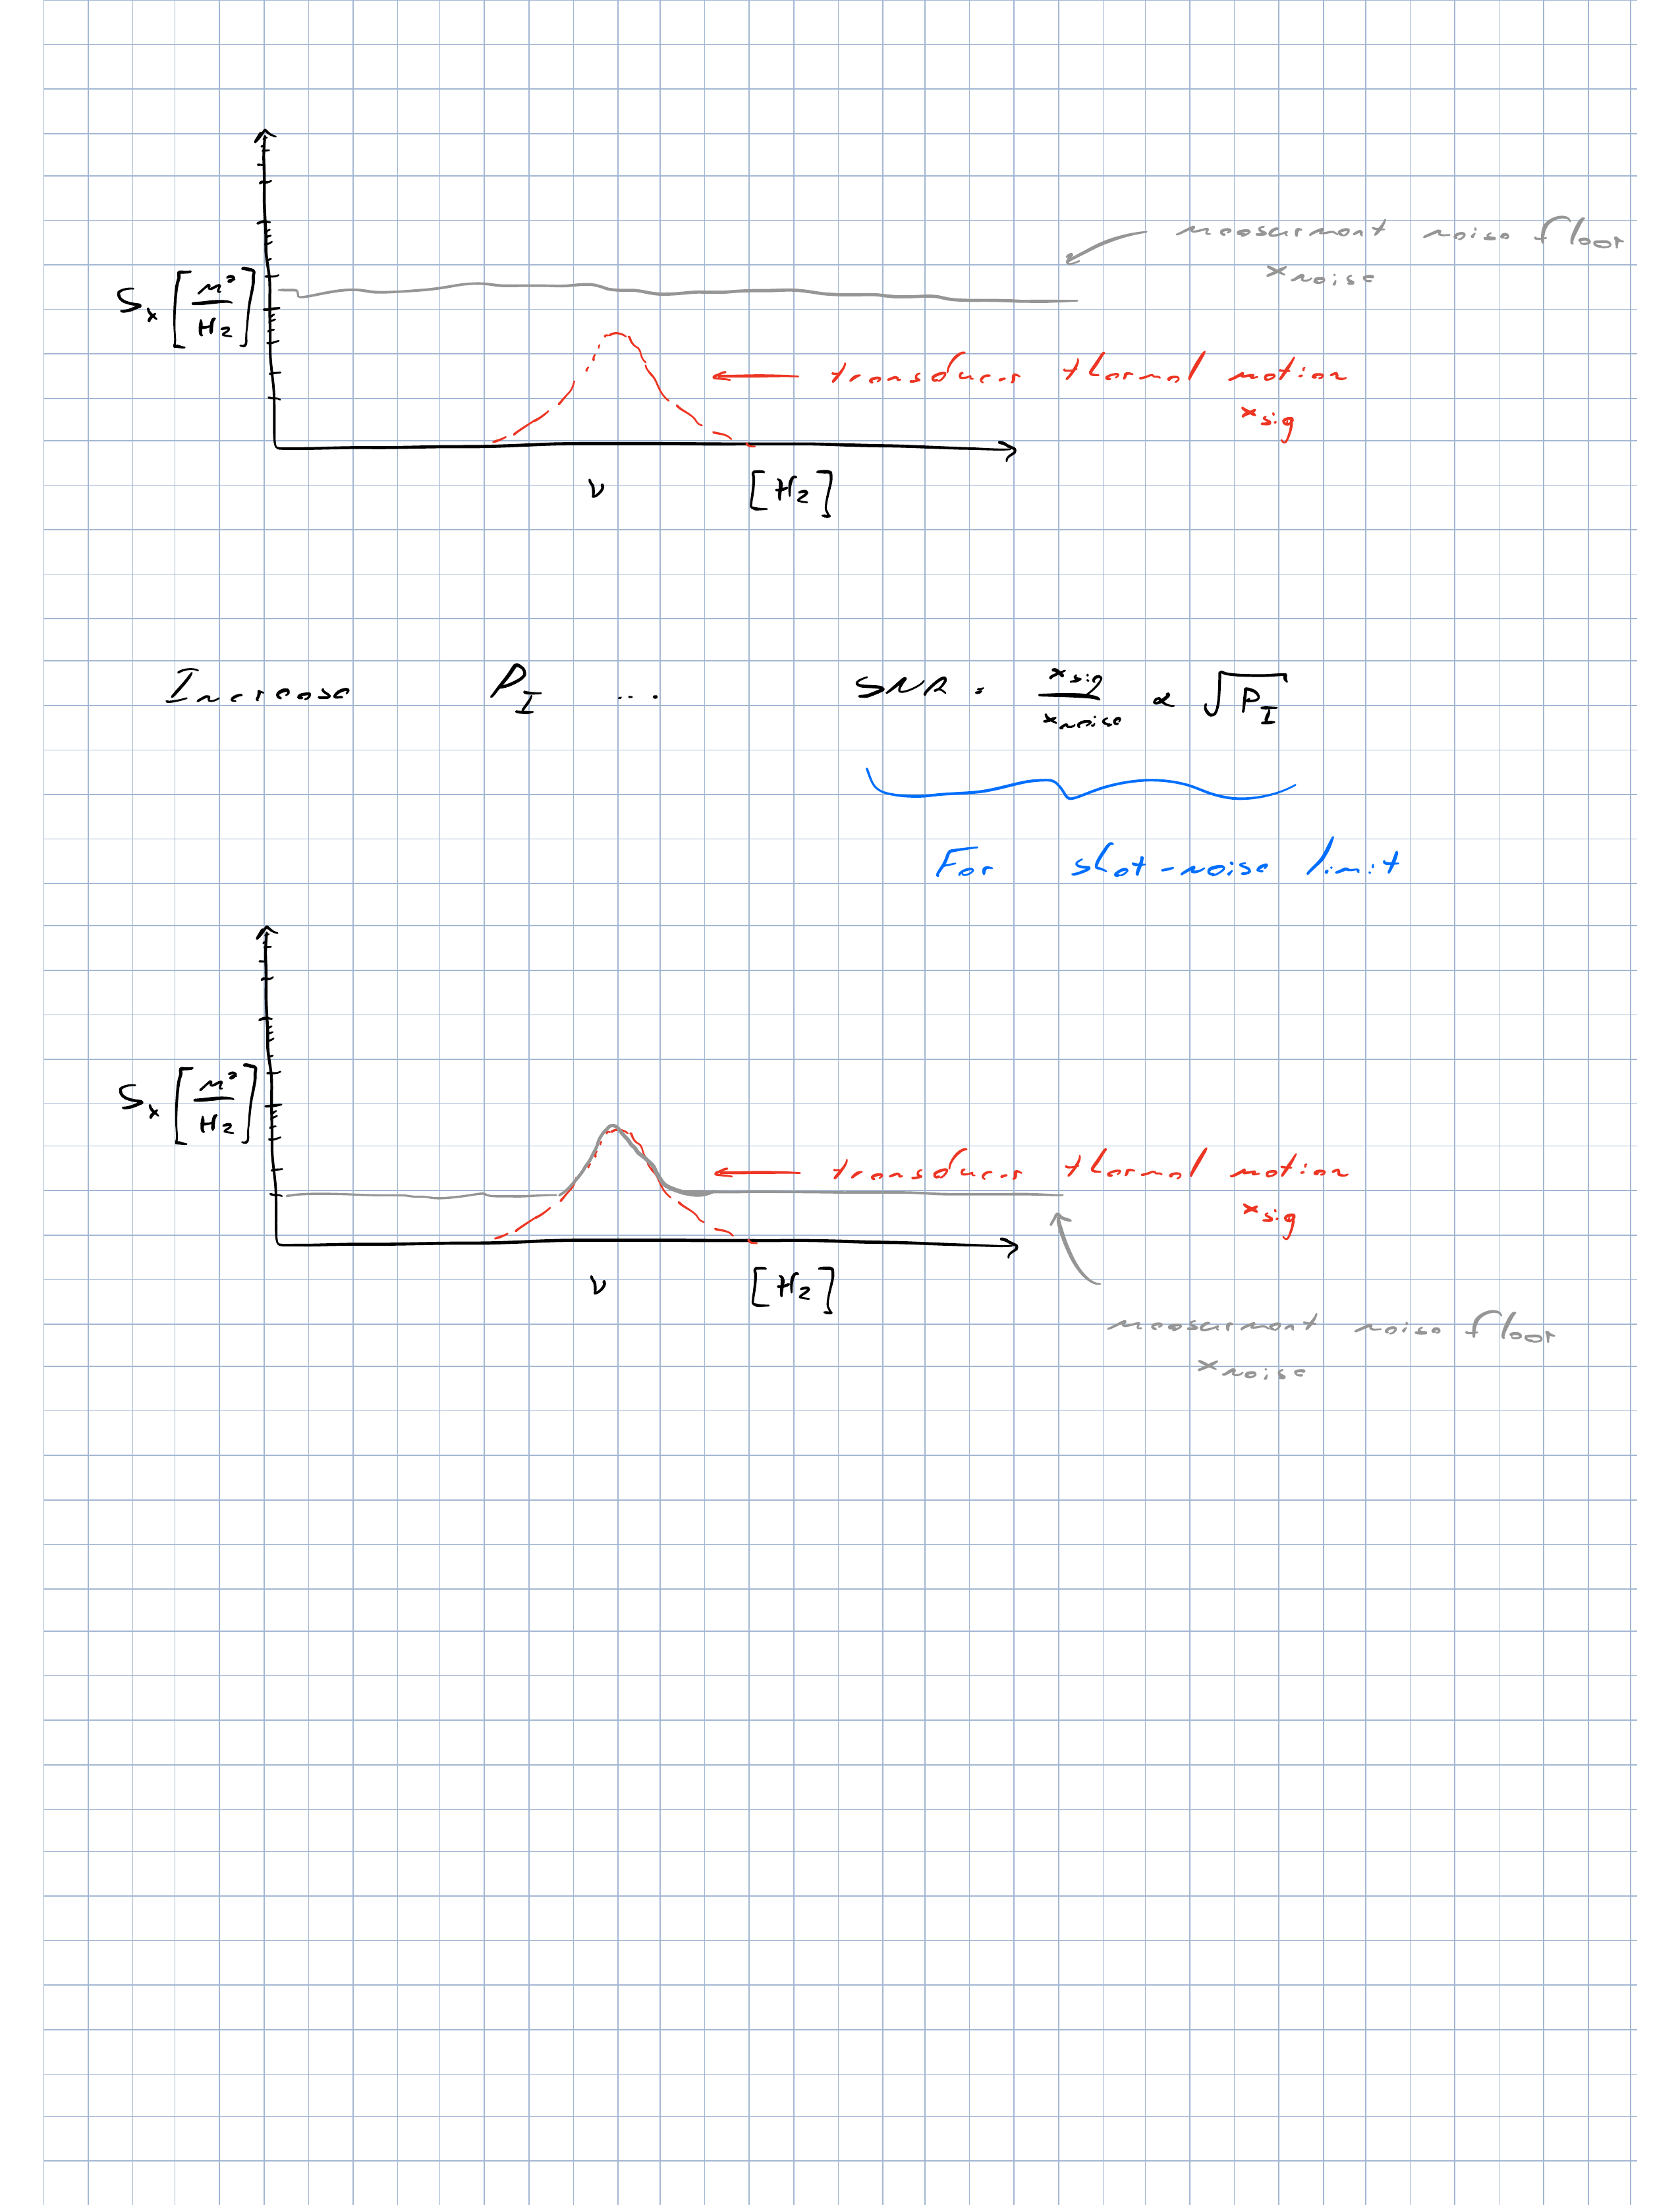 measurment noise floor
x_noise
S_x [m²/Hz]
transducer thermal motion
x_sig
ν [Hz]
Increase P_I ... SNR = x_sig/x_noise ∝ √P_I
For shot-noise limit
S_x [m²/Hz]
transducer thermal motion
x_sig
ν [Hz]
measurment noise floor
x_noise